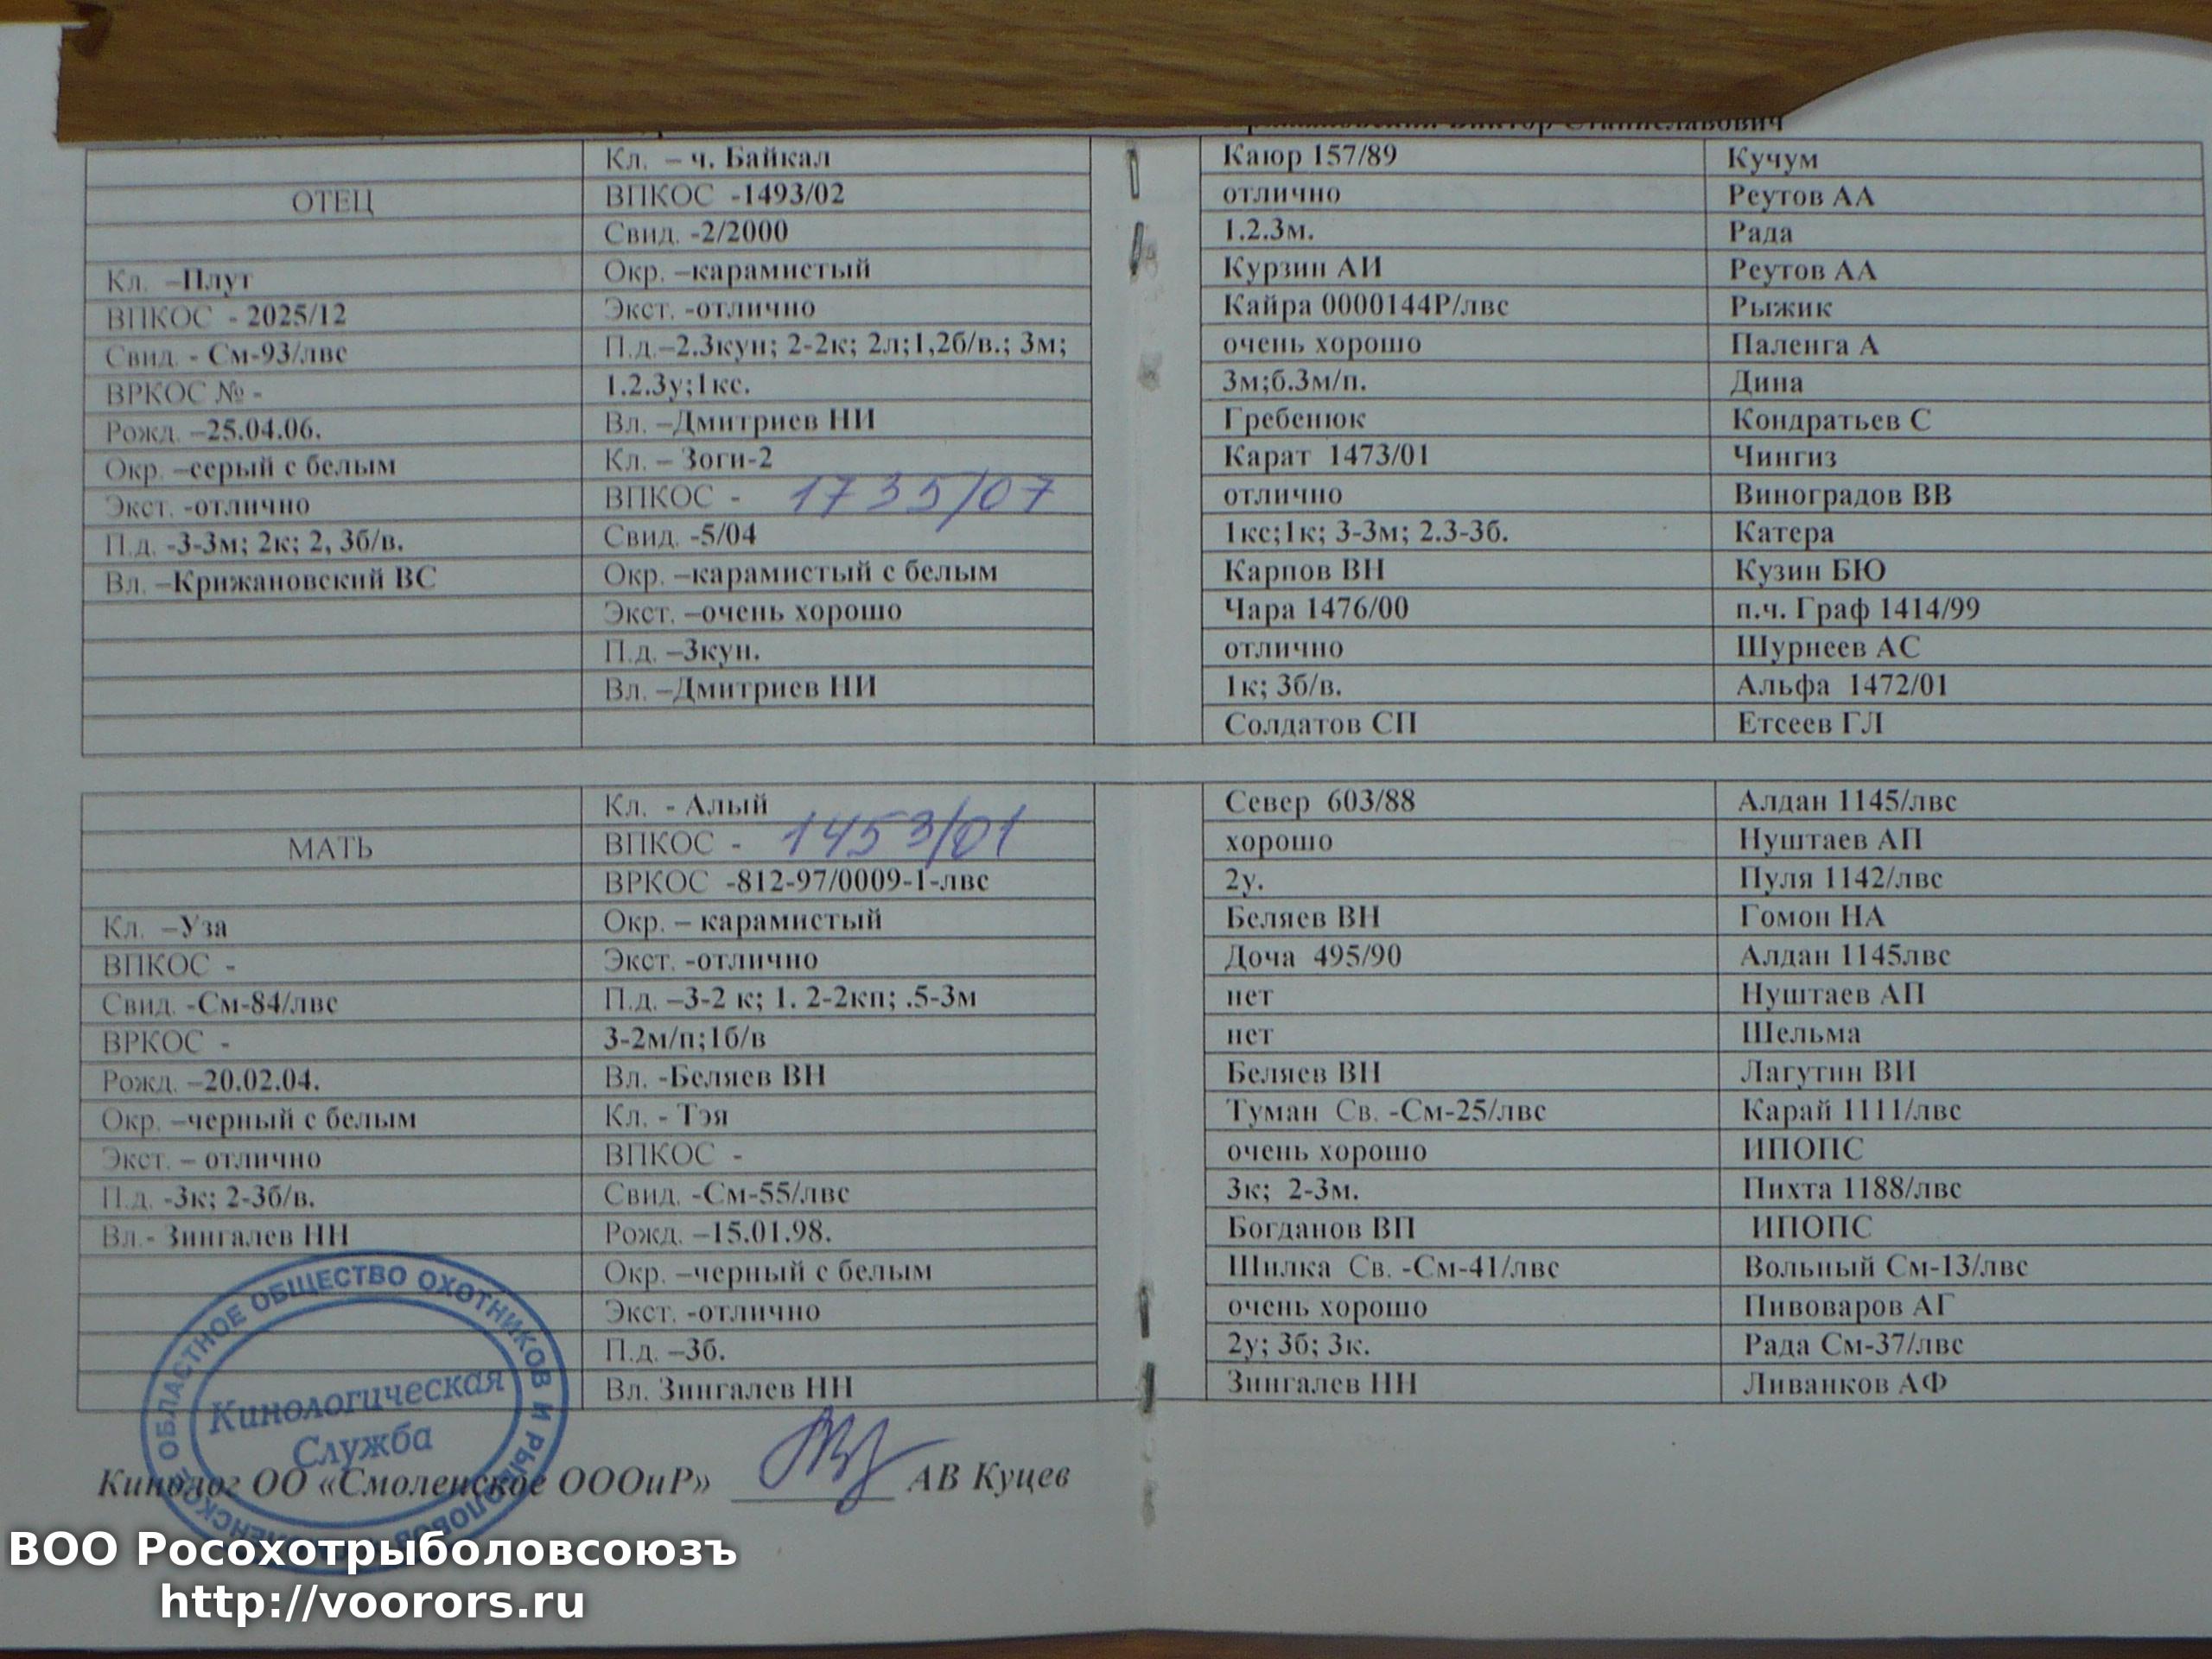 Виктор Станиславович
Кл. – ч. Байкал
ОТЕЦ
ВПКОС -1493/02
Свид. -2/2000
Кл. –Плут
Окр. –карамистый
ВПКОС - 2025/12
Экст. -отлично
Свид. - См-93/лвс
П.д.–2.3кун; 2-2к; 2л;1,2б/в.; 3м;
ВРКОС № -
1.2.3у;1кс.
Рожд. –25.04.06.
Вл. –Дмитриев НИ
Окр. –серый с белым
Кл. – Зоги-2
Экст. -отлично
ВПКОС - 1735/07
П.д. -3-3м; 2к; 2, 3б/в.
Свид. -5/04
Вл. –Крижановский ВС
Окр. –карамистый с белым
Экст. –очень хорошо
П.д. –3кун.
Вл. –Дмитриев НИ
Каюр 157/89 Кучум
отлично Реутов АА
1.2.3м. Рада
Курзин АИ Реутов АА
Кайра 0000144Р/лвс Рыжик
очень хорошо Паленга А
3м;б.3м/п. Дина
Гребенюк Кондратьев С
Карат 1473/01 Чингиз
отлично Виноградов ВВ
1кс;1к; 3-3м; 2.3-3б. Катера
Карпов ВН Кузин БЮ
Чара 1476/00 п.ч. Граф 1414/99
отлично Шурнеев АС
1к; 3б/в. Альфа 1472/01
Солдатов СП Етсеев ГЛ
Кл. - Алый
МАТЬ
ВПКОС - 1453/01
ВРКОС -812-97/0009-1-лвс
Кл. –Уза
Окр. – карамистый
ВПКОС -
Экст. -отлично
Свид. -См-84/лвс
П.д. –3-2 к; 1. 2-2кп; .5-3м
ВРКОС -
3-2м/п;1б/в
Рожд. –20.02.04.
Вл. -Беляев ВН
Окр. –черный с белым
Кл. - Тэя
Экст. – отлично
ВПКОС -
П.д. -3к; 2-3б/в.
Свид. -См-55/лвс
Вл.- Зингалев НН
Рожд. –15.01.98.
Окр. –черный с белым
Экст. -отлично
П.д. –3б.
Вл. Зингалев НН
Север 603/88 Алдан 1145/лвс
хорошо Нуштаев АП
2у. Пуля 1142/лвс
Беляев ВН Гомон НА
Доча 495/90 Алдан 1145лвс
нет Нуштаев АП
нет Шельма
Беляев ВН Лагутин ВИ
Туман Св. -См-25/лвс Карай 1111/лвс
очень хорошо ИПОПС
3к; 2-3м. Пихта 1188/лвс
Богданов ВП ИПОПС
Шилка Св. -См-41/лвс Вольный См-13/лвс
очень хорошо Пивоваров АГ
2у; 3б; 3к. Рада См-37/лвс
Зингалев НН Ливанков АФ
СМОЛЕНСКОЕ ОБЛАСТНОЕ ОБЩЕСТВО ОХОТНИКОВ И РЫБОЛОВОВ
Кинологическая
Служба
Кинолог ОО «Смоленское ОООиР» АВ Куцев
ВОО Росохотрыболовсоюзъ
http://voorors.ru